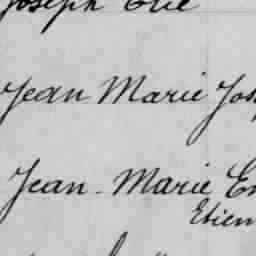 Joseph Elie
Jean Marie Jos
Jean-Marie Em
Etien